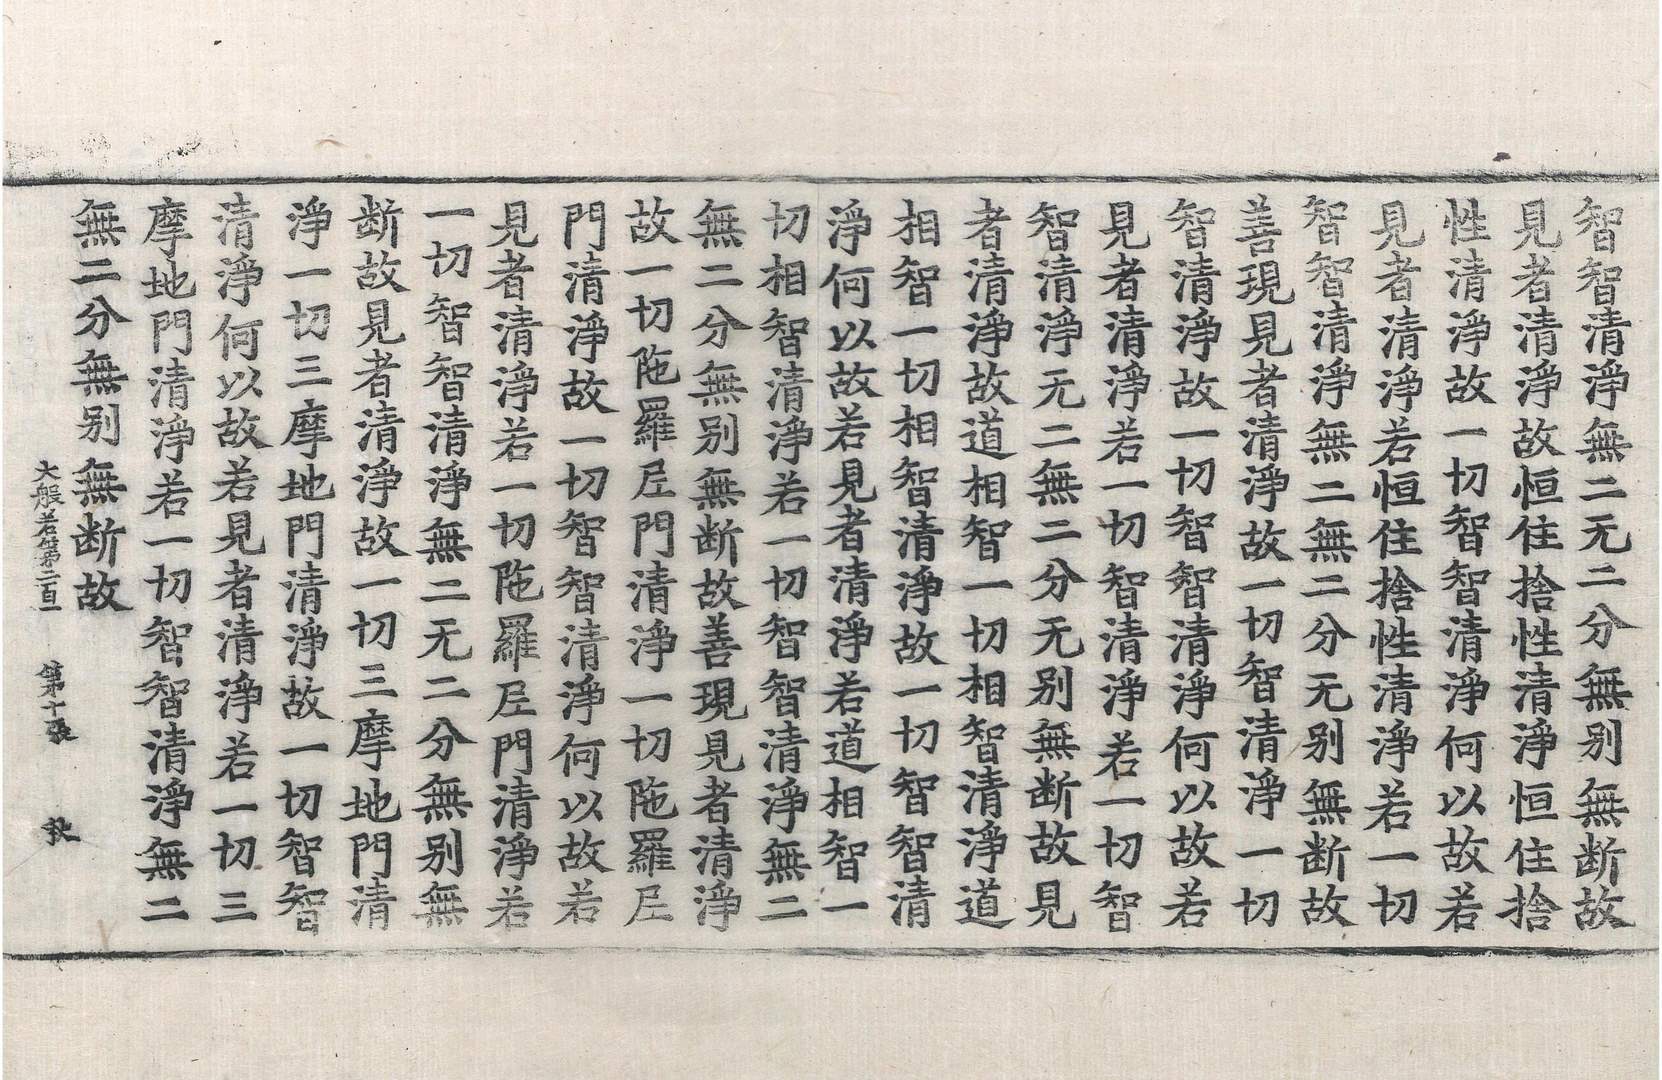 智智清淨無二无二分無别無断故
見者清淨故恒住捨性清淨恒住捨
性清淨故一切智智清淨何以故若
見者清淨若恒住捨性清淨若一切
智智清淨無二無二分无别無断故
善現見者清淨故一切智清淨一切
智清淨故一切智智清淨何以故若
見者清淨若一切智清淨若一切智
智清淨无二無二分无别無断故見
者清淨故道相智一切相智清淨道
相智一切相智清淨故一切智智清
淨何以故若見者清淨若道相智一
切相智清淨若一切智智清淨無二
無二分無别無断故善現見者清淨
故一切陁羅尼門清淨一切陁羅尼
門清淨故一切智智清淨何以故若
見者清淨若一切陁羅尼門清淨若
一切智智清淨無二无二分無别無
断故見者清淨故一切三摩地門清
淨一切三摩地門清淨故一切智智
清淨何以故若見者清淨若一切三
摩地門清淨若一切智智清淨無二
無二分無别無断故
大般若第二百一 第十張